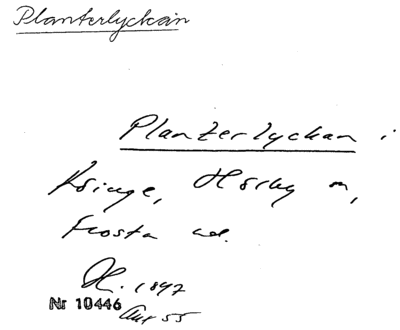 Planterlyckan
Planterlyckan i
Hörby m,
Frosta hd.
1847
Nr 10446
55